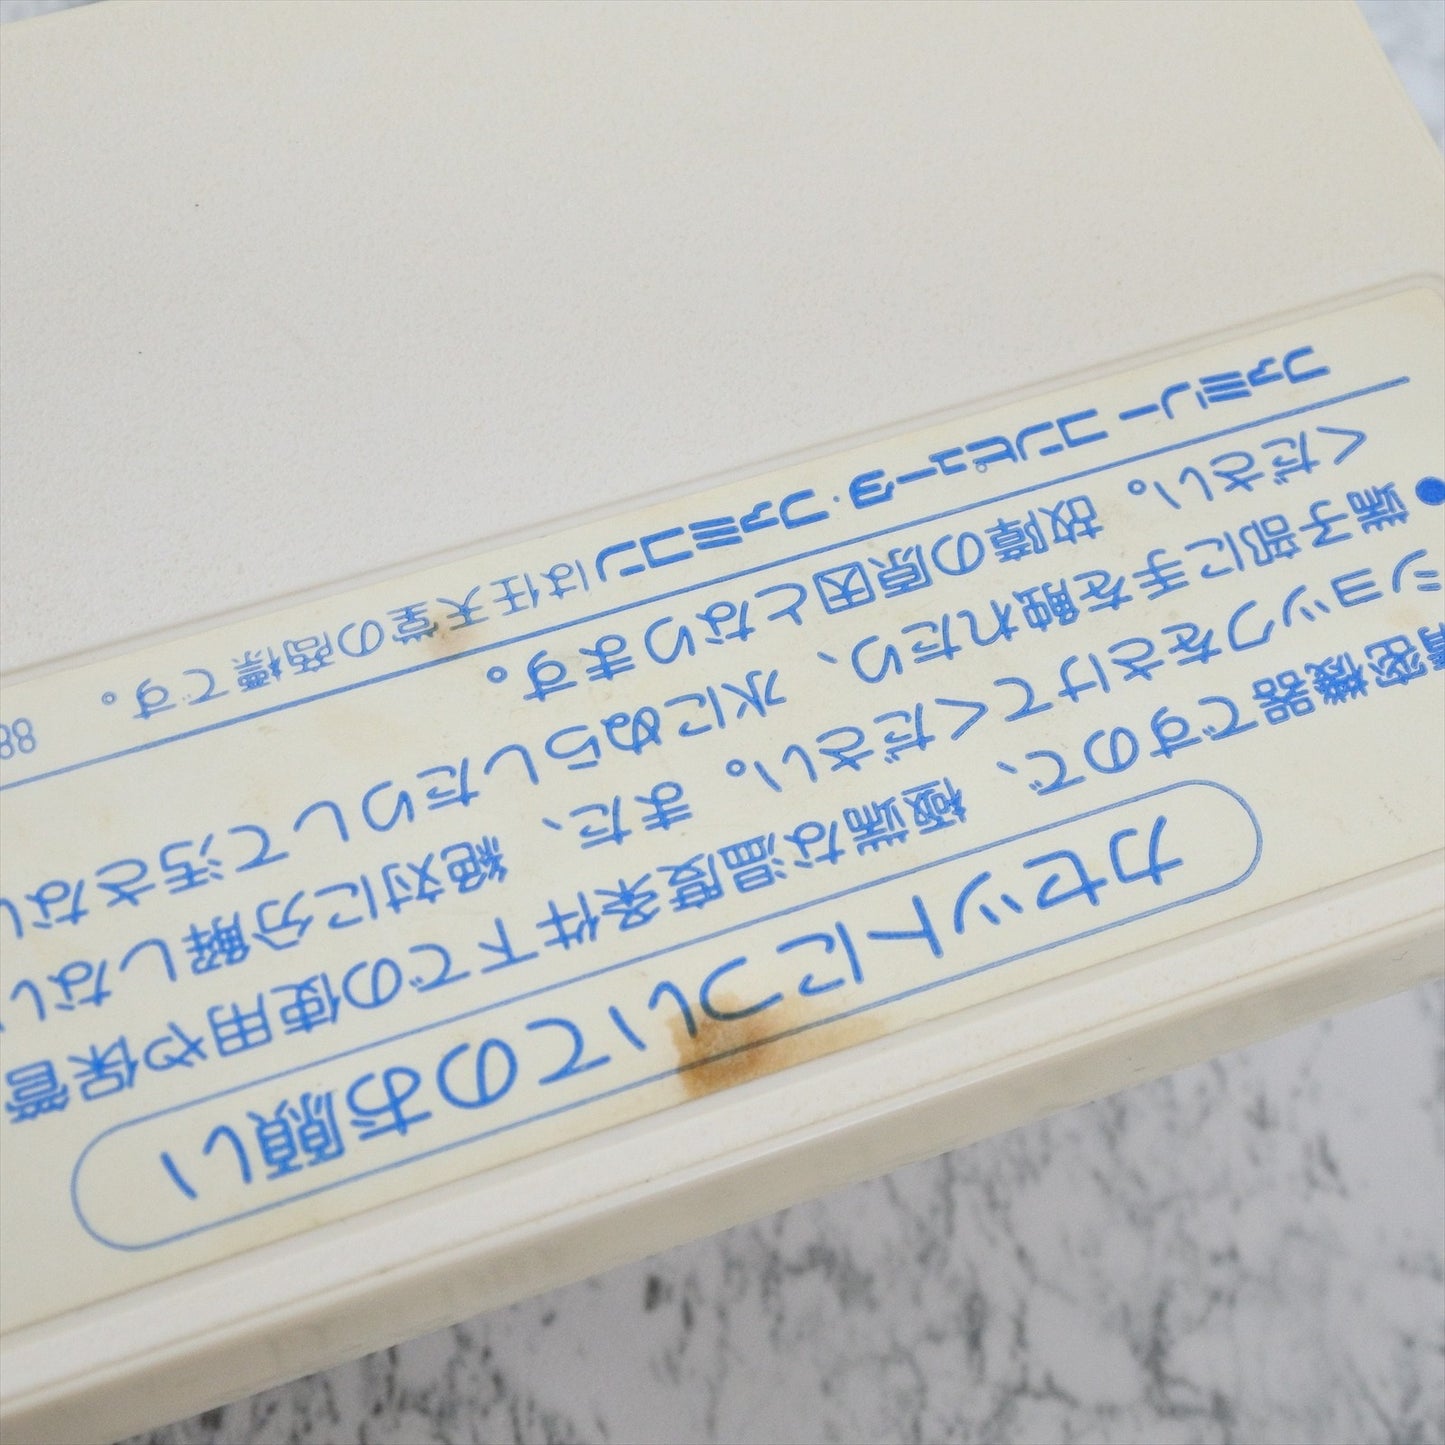 カセットについてのお願い
精密機器ですので、極端な温度条件下での使用や保管
ショックをさけてください。また、絶対に分解しない
●端子部に手を触れたり、水にぬらしたりして汚さない
ください。故障の原因となります。
ファミリーコンピュータ・ファミコンは任天堂の商標です。 88